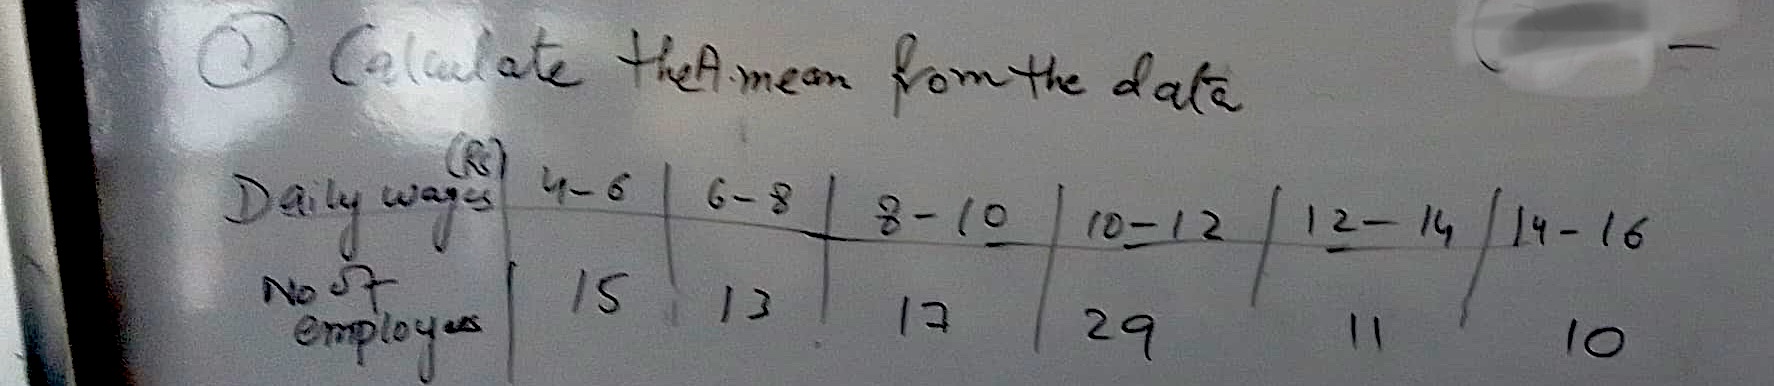 ① Calculate the A.mean from the data
Daily wages (Rs) | 4-6 | 6-8 | 8-10 | 10-12 | 12-14 | 14-16
No of employees | 15 | 13 | 17 | 29 | 11 | 10